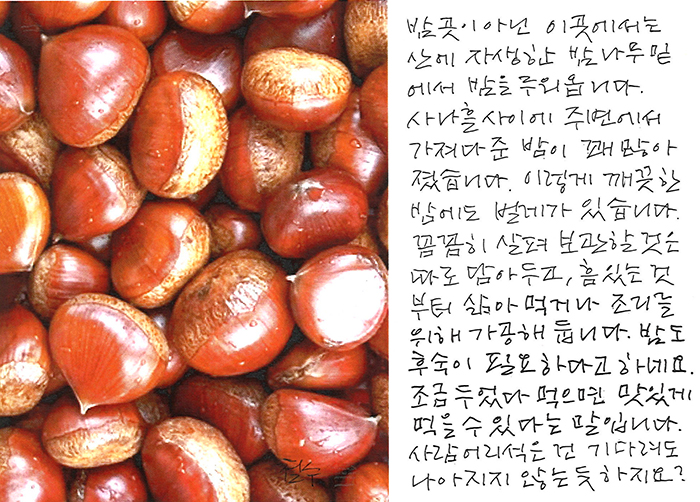 밤곳이 아닌 이곳에서는
산에 자생한 밤나무 밑
에서 밤을 주워옵니다.
사나흘 사이에 주변에서
가져다 준 밤이 꽤 많아
졌습니다. 이렇게 깨끗한
밤에도 벌레가 있습니다.
꼼꼼히 살펴 보관할 것은
따로 담아두고, 흠있는 것
부터 삶아 먹거나 조리를
위해 가공해 둡니다. 밤도
후숙이 필요하다고 하네요.
조금 두었다 먹으면 맛있게
먹을 수 있다는 말입니다.
사람 어리석은 건 기다려도
나아지지 않는 듯 하지요?